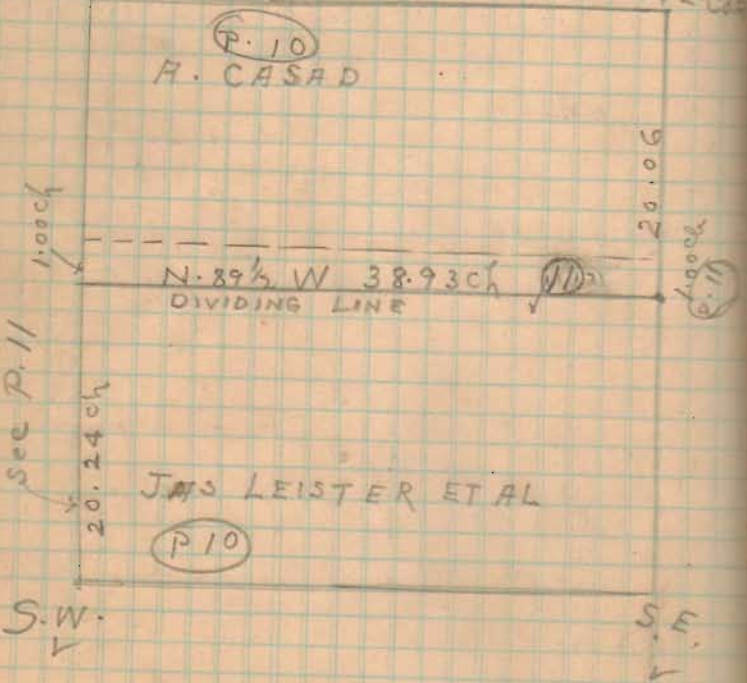 P. 10
A. CASAD
20.06
1.00ch
N. 89½ W 38.93 Ch
DIVIDING LINE
1.00Ch
P. 11
See P. 11
20.24 ch
JAS LEISTER ET AL
P 10
S.W.
S.E.